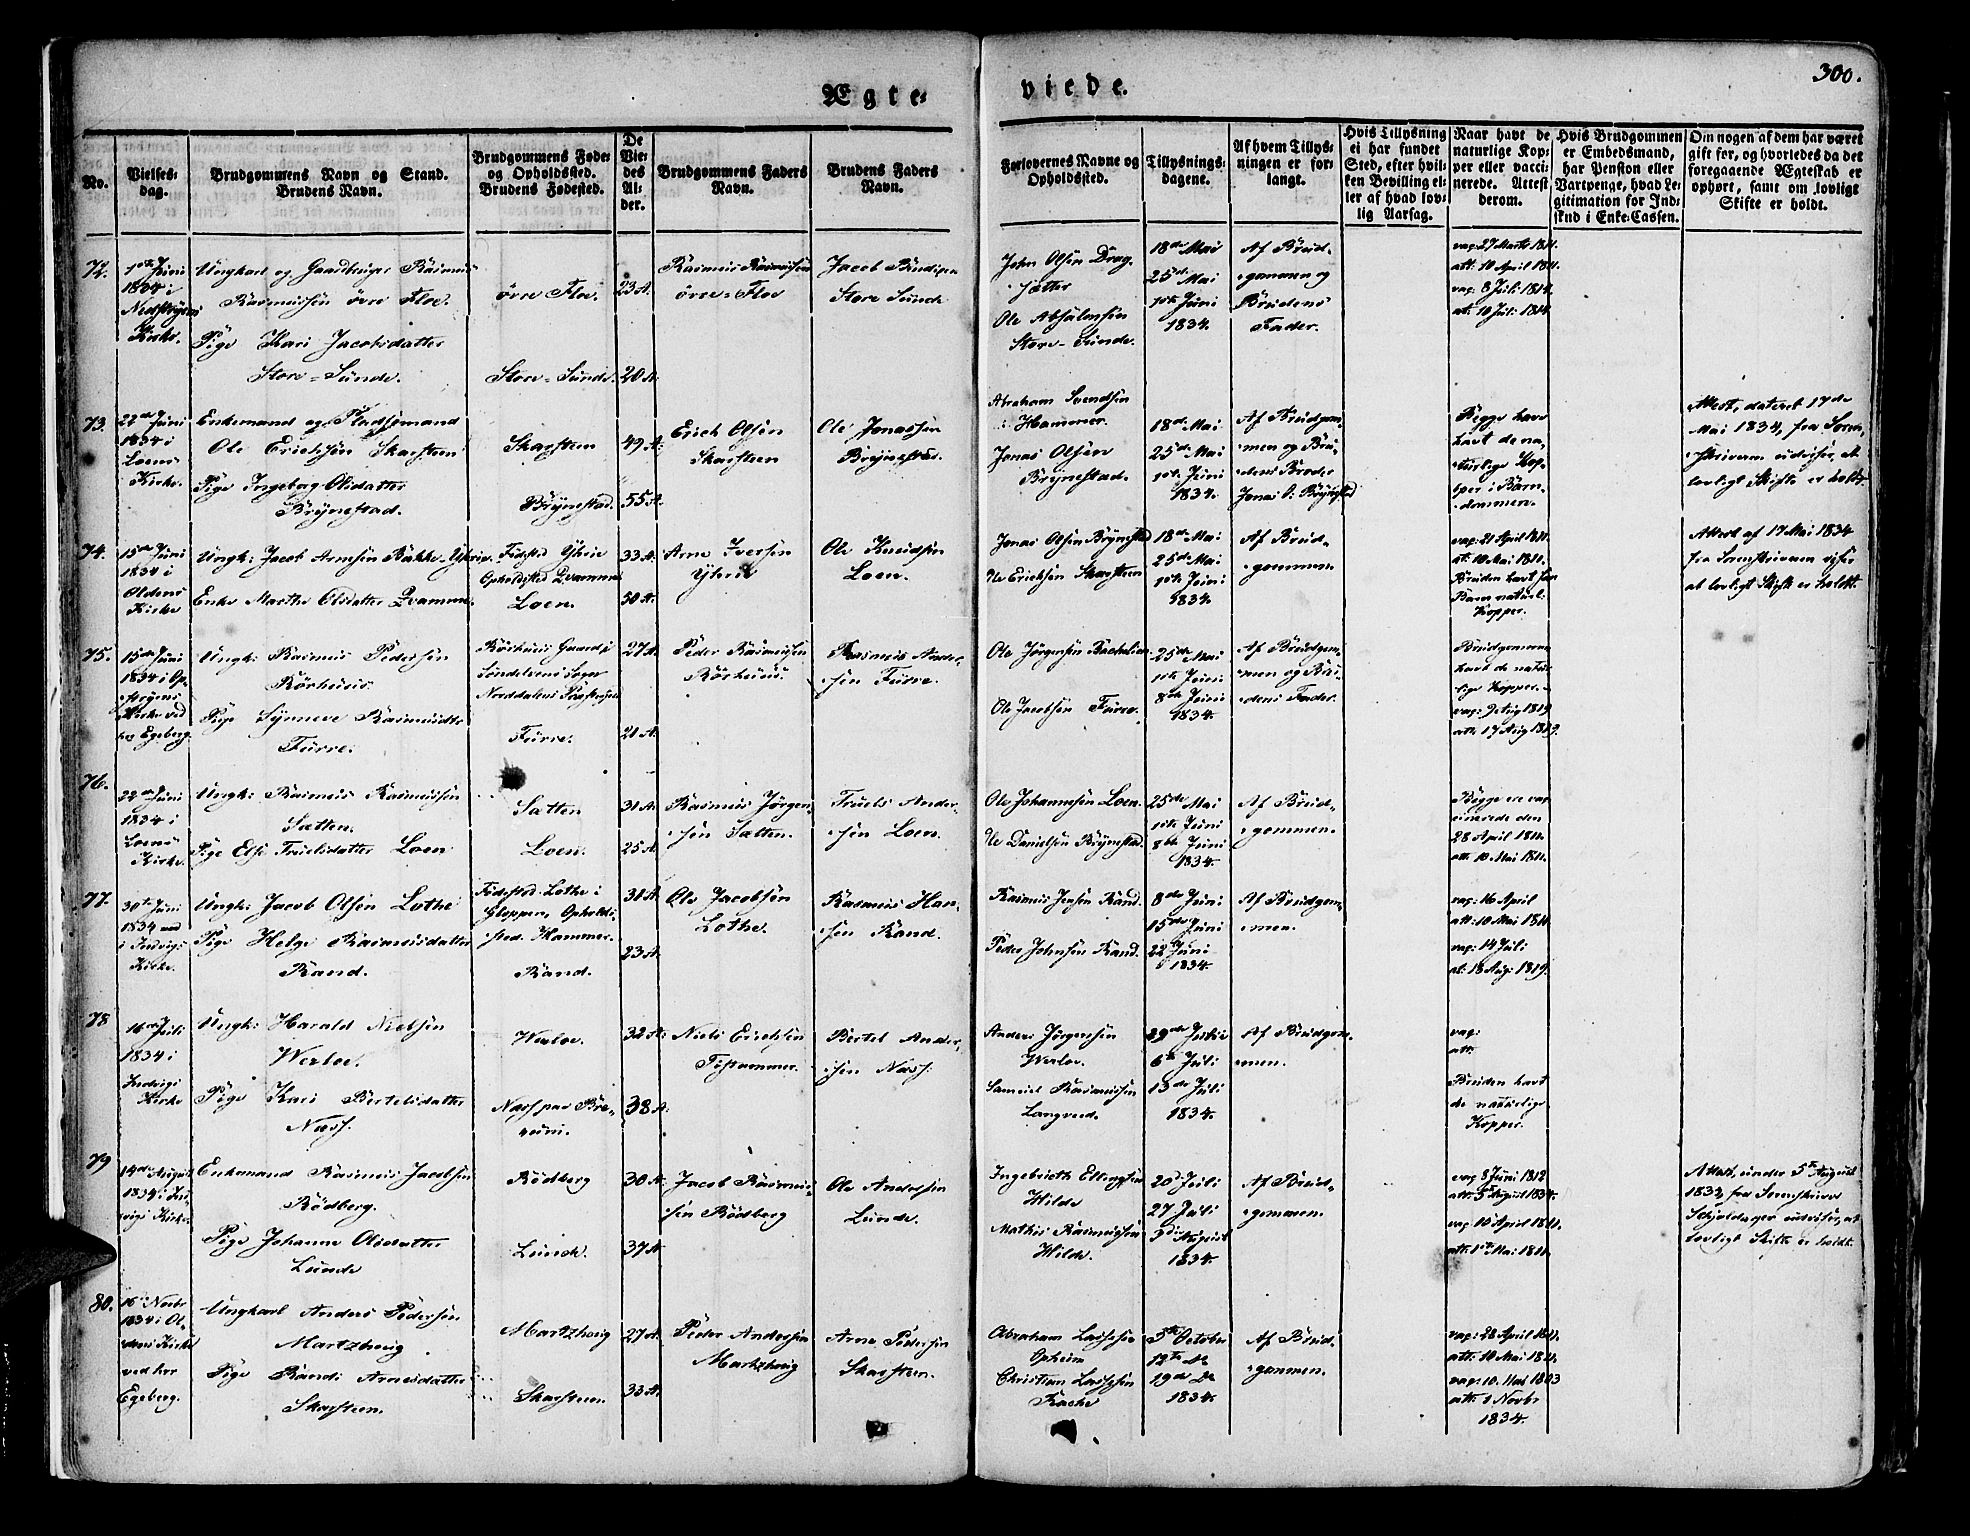 Ægte=
viede.
300.
No.
Vielses-
dag.
Brudgommens Navn og Stand.
Brudens Navn.
Brudgommens Føde-
og Opholdssted.
Brudens Fødested.
De
Vie-
des
Al-
der.
Brudgommens Faders
Navn.
Brudens Faders
Navn.
Forlovernes Navne og
Opholdssted.
Tillysnings-
dagene.
Af hvem Tillys-
ningen er for-
langt.
Hvis Tillysning
ei har fundet
Sted, efter hvil-
ken Bevilling el-
ler af hvad lov-
lig Aarsag.
Naar havt de
naturlige Kop-
per eller vacci-
nerede. Attest
derom.
Hvis Brudgommen
er Embedsmand,
har Pension eller
Vartpenge, hvad Le-
gitimation for Ind-
skud i Enke-Cassen.
Om nogen af dem har været
gift før, og hvorledes da det
foregaaende Ægteskab er
ophørt, samt om lovligt
Skifte er holdt.
72.
1ste Juni
1834 i
Kirke.
Ungkarl og Rasmus
Rasmussen övre Floe.
Pige Kari Jacobsdatter
Store-Sunde.
övre Floe.
Store-Sunde.
23 A.
20 A.
Rasmus Rasmussen
övre-Floe
Jacob
Store Sunde
John Olsen Drag-
sætter
Ole Absalonsen
Store-Sunde.
18de Mai
25de Mai
1ste Juni
1834.
Af Brud-
gommen og
Brudens
Fader.
vac: 27 Marts 1811.
att: 10 April 1811.
vac: 8 Juli 1814.
att: 10 Juli 1814.
73.
22de Juni
1834 i
Loens
Kirke.
Enkemand og Pladsemand
Ole Erichsen Skarsteen
Pige Ingeborg Olsdatter
Brynestad.
Skarsteen
Brynestad.
49 A.
55 A.
Erich Olsen
Skarsteen
Ole Jonassen
Brynestad.
Abraham Svendsen
Hammer.
Jonas Olsen
Brynestad.
18de Mai
25de Mai
1ste Juni
1834.
Af Brudgom-
men og Bru-
dens Broder
Jonas O: Brynestad
Begge have
havt de na-
turlige Kop-
per i Barn-
dommen.
Attest, dateret 17de
Mai 1834, fra Soren-
skriveren udviser, at
lovligt Skifte er holdt.
74.
15de Juni
1834 i
Oldens
Kirke
Ungk: Jacob Arnesen Bakke-Yhrie
Enke Marthe Olsdatter Qvamme.
Fødested Yhrie
Opholdssted Qvamme
Loen.
33 A.
50 A.
Arne Iversen
Yhrie
Ole Knudsen
Loen.
Jonas Olsen Brynestad
Ole Erichsen Skarsteen
18de Mai
25de Mai
1ste Juni
1834.
Af Brud-
gommen
vac: 21 April 1811.
att: 10 Mai 1811.
Bruden havt som
Barn naturl:
Kopper.
Attest af 17 Mai 1834
fra Sorenskriveren viser
at lovligt Skifte er holdt.
75.
15de Juni
1834 i Op-
strynens
Kirke ved
hr Egeberg.
Ungk: Rasmus Pedersen
Rörhuus.
Pige Synneve Rasmusdtr
Furre.
Rörhuus Gaard i
Sogn
Norddalens Præstegjeld
Furre.
27 A.
21 A.
Peder Rasmussen
Rörhuus.
Rasmus Ander-
sen Furre.
Ole Jörgensen
Ole Jacobsen Furre.
25de Mai
1ste Juni
8de Juni
1834.
Af Brudgom-
men og Bru-
dens Fader.
Brudgommen
havt de natur-
lige Kopper.
vac: 9 Aug 1819
att: 17 Aug 1819.
76.
22de Juni
1834 i
Loens
Kirke.
Ungk: Rasmus Rasmussen
Sætten.
Pige Elsi Truelsdatter Loen
Sætten
Loen.
31 A.
25 A.
Rasmus Jörgen-
sen Sætten.
Truels Ander-
sen Loen.
Ole Johannesen Loen.
Ole Danielsen Brynestad.
25de Mai
1ste Juni
8de Juni
1834.
Af Brud-
gommen.
Begge ere vac-
cinerede den
28 April 1811.
att: 10 Mai 1811.
77.
30te Juni
1834 ved
i Indvigs
Kirke.
Ungk: Jacob Olsen Lothe
Pige Helge Rasmusdatter
Rand.
Fødested: Lothe i
Gloppen, Opholds-
sted. Hammer.
Rand.
31 A.
23 A.
Ole Jacobsen
Lothe.
Rasmus Han-
sen Rand.
Rasmus Jensen Rand.
Peder Johnsen Rand.
8de Juni
15de Juni
22 Juni
1834.
Af Brudgom-
men.
vac: 16 April
att: 10 Mai 1811.
vac: 14 Juli
at: 18 Aug: 1819.
78
16de Juli
1834 i
Indvigs
Kirke
Ungk: Harald Nielsen
Werloe.
Pige Kari Bertelsdatter
Næss.
Werloe.
Næss paa Bre-
mm.
32 A.
38 A.
Niels Erichsen
Bertel Ander-
sen Næss.
Anders Jörgensen
Werloe.
Samuel Rasmussen
Langved.
29de Junie
6te Juli
13de Juli
1834.
Af Brudgom-
men.
vac:
att:
Bruden havt
de naturlige
Kopper.
79
14de August
1834 i Ind-
vigs Kirke.
Enkemand Rasmus Jacobsen
Rödberg.
Pige Johanne Olsdatter
Lunde
Rödberg
Lunde.
30 A.
37 A.
Jacob Rasmus-
sen Rödberg
Ole Andersen
Lunde.
Ingebrigth Ellingsen
Hilde
Mathis Rasmussen
Hilde.
20 Juli
27 Juli
3die August
1834.
Af Brud-
gommen.
vac: 8 Juni 1812
att: 5 August 1834.
vac 10 April 1811.
att: 1ste Mai 1811.
Attest, under 5te August
1833 fra Sorenskriver
udviser, at
lovligt Skifte er holdt.
80.
16 Novbr
1834 i Ol-
dens Kirke
ved hr
Egeberg.
Ungkarl Anders Pedersen
Martzhoug
Pige Randi Arnesdatter
Skarsteen.
Martzhoug
Skarsteen.
27 A.
33 A.
Peder Andersen
Martzhoug
Arne Pedersen
Skarsteen.
Abraham Lassesen
Opheim
Christian Lassesen
5te October
12te De
19de De
1834.
Af Brud-
gommen.
vac: 28 April 1811.
att: 10 Mai 1811.
vac: 10. Mai 1803
att: 1 Novbr
1834.